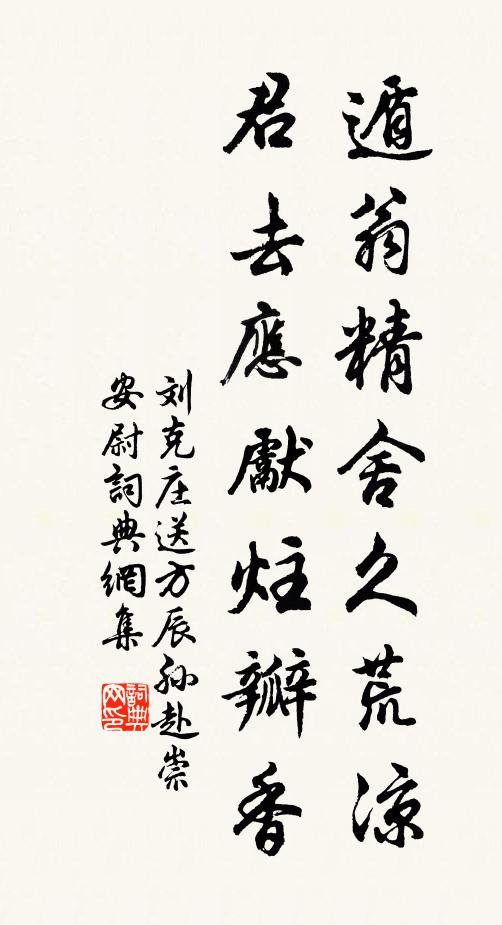 遁翁精舍久荒凉
君去應獻炷瓣香
刘克庄送方辰孙赴崇
安尉詞典網集
詞典
网印